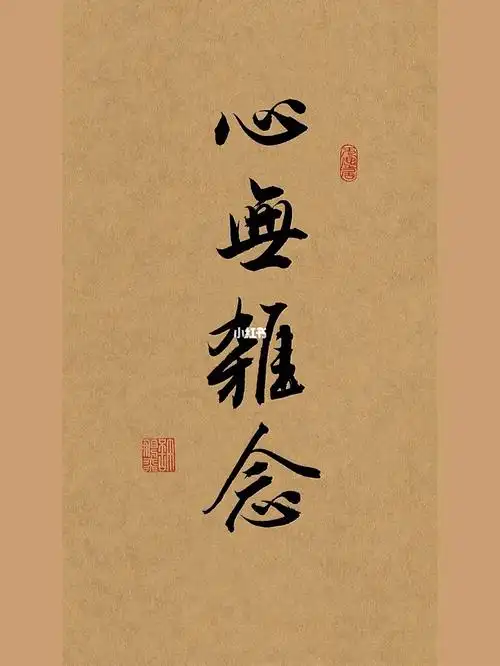 心無雜念
小红书